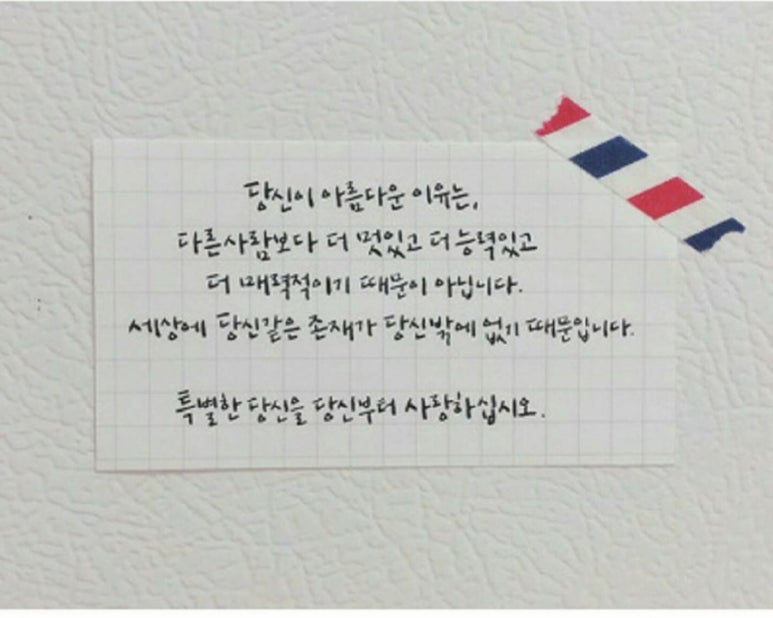 당신이 아름다운 이유는,
다른사람보다 더 멋있고 더 능력있고
더 매력적이기 때문이 아닙니다.
세상에 당신같은 존재가 당신밖에 없기 때문입니다.
특별한 당신을 당신부터 사랑하십시오.